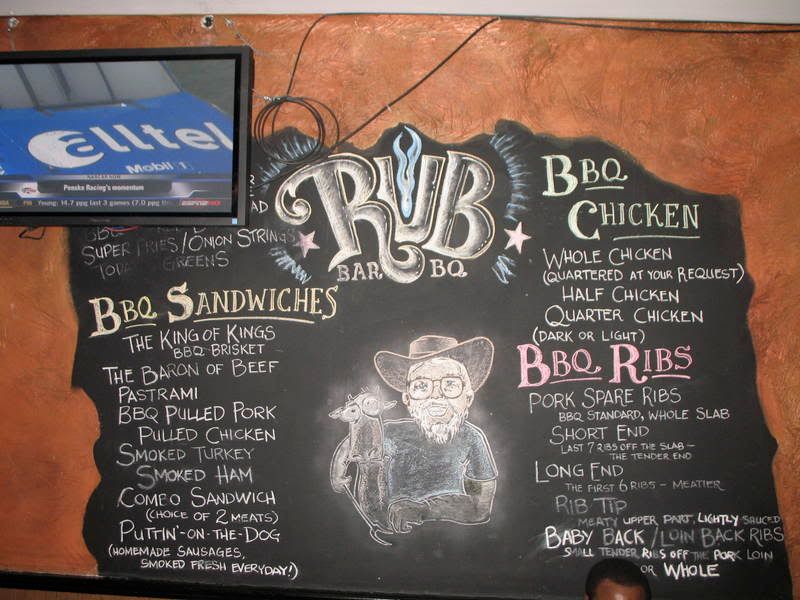 alltel
Mobil 1
Penske Racing's momentum
Young: 14.7 ppg last 3 games (7.0 ppg
BBQ
SUPER FRIES/ONION STRINGS
GREENS
BBQ SANDWICHES
THE KING OF KINGS
BBQ BRISKET
THE BARON OF BEEF
PASTRAMI
BBQ PULLED PORK
PULLED CHICKEN
SMOKED TURKEY
SMOKED HAM
COMBO SANDWICH
(CHOICE OF 2 MEATS)
PUTTIN'-ON-THE-DOG
(HOMEMADE SAUSAGES,
SMOKED FRESH EVERYDAY!)
RUB
BAR BQ
BBQ
CHICKEN
WHOLE CHICKEN
(QUARTERED AT YOUR REQUEST)
HALF CHICKEN
QUARTER CHICKEN
(DARK OR LIGHT)
BBQ RIBS
PORK SPARE RIBS
BBQ STANDARD, WHOLE SLAB
SHORT END
LAST 7 RIBS OFF THE SLAB -
THE TENDER END
LONG END
THE FIRST 6 RIBS - MEATIER
RIB TIP
MEATY UPPER PART, LIGHTLY SAUCED
BABY BACK / LOIN BACK RIBS
SMALL TENDER RIBS OFF THE PORK LOIN
OR WHOLE